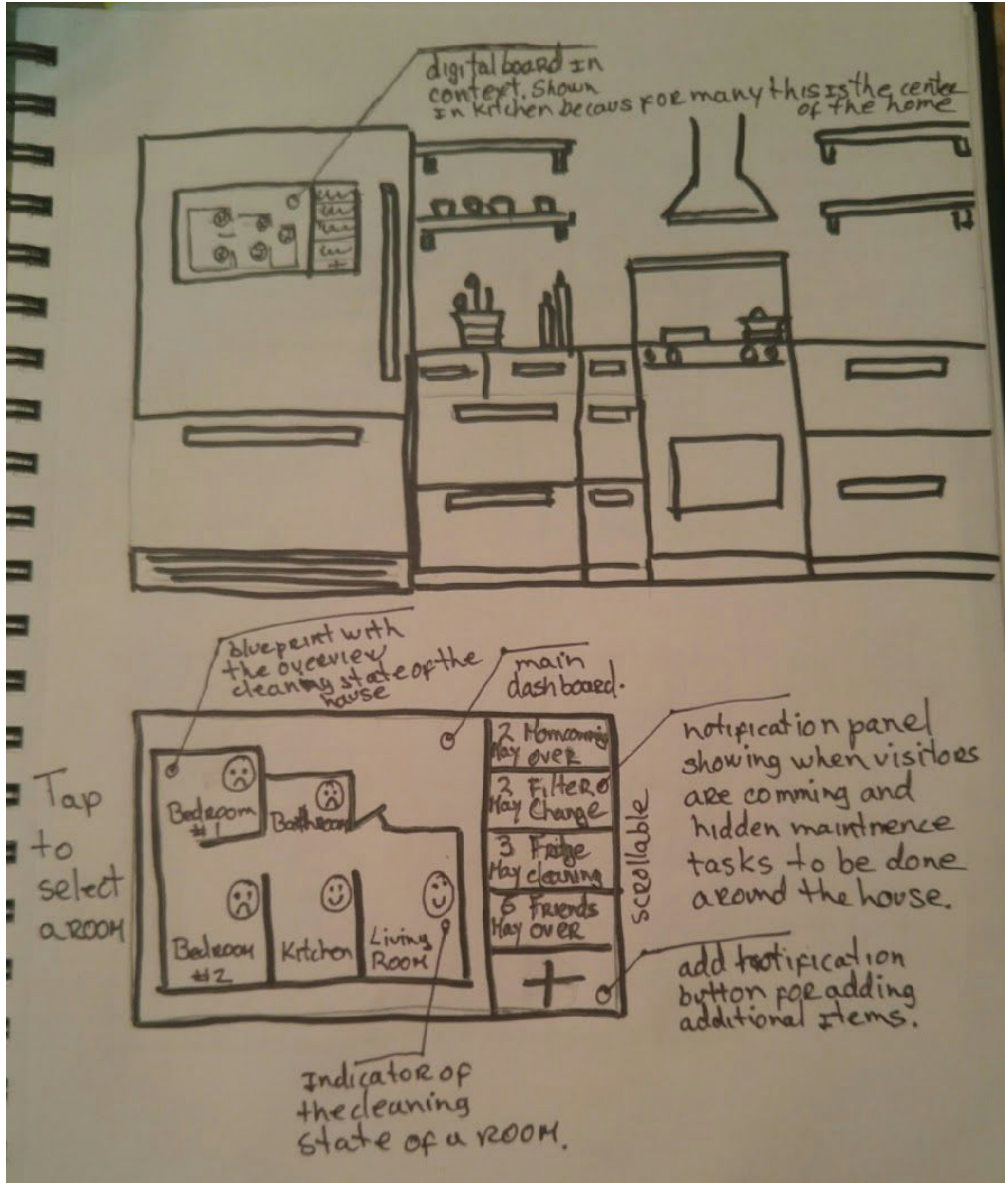 digital board in
context. Shown
in kitchen becaus for many this is the center
of the home
blueprint with
the overview
cleaning state of the
house
main
dashboard.
Tap
to
select
a room
Bedroom
#1
Bathroom
Bedroom
#2
Kitchen
Living
Room
2 Mom coming
May over
2 Filter
May Change
3 Fridge
May cleaning
6 Friends
May over
+
scrollable
notification panel
showing when visitors
are comming and
hidden maintnence
tasks to be done
around the house.
add notification
button for adding
additional items.
Indicator of
the cleaning
state of a room.